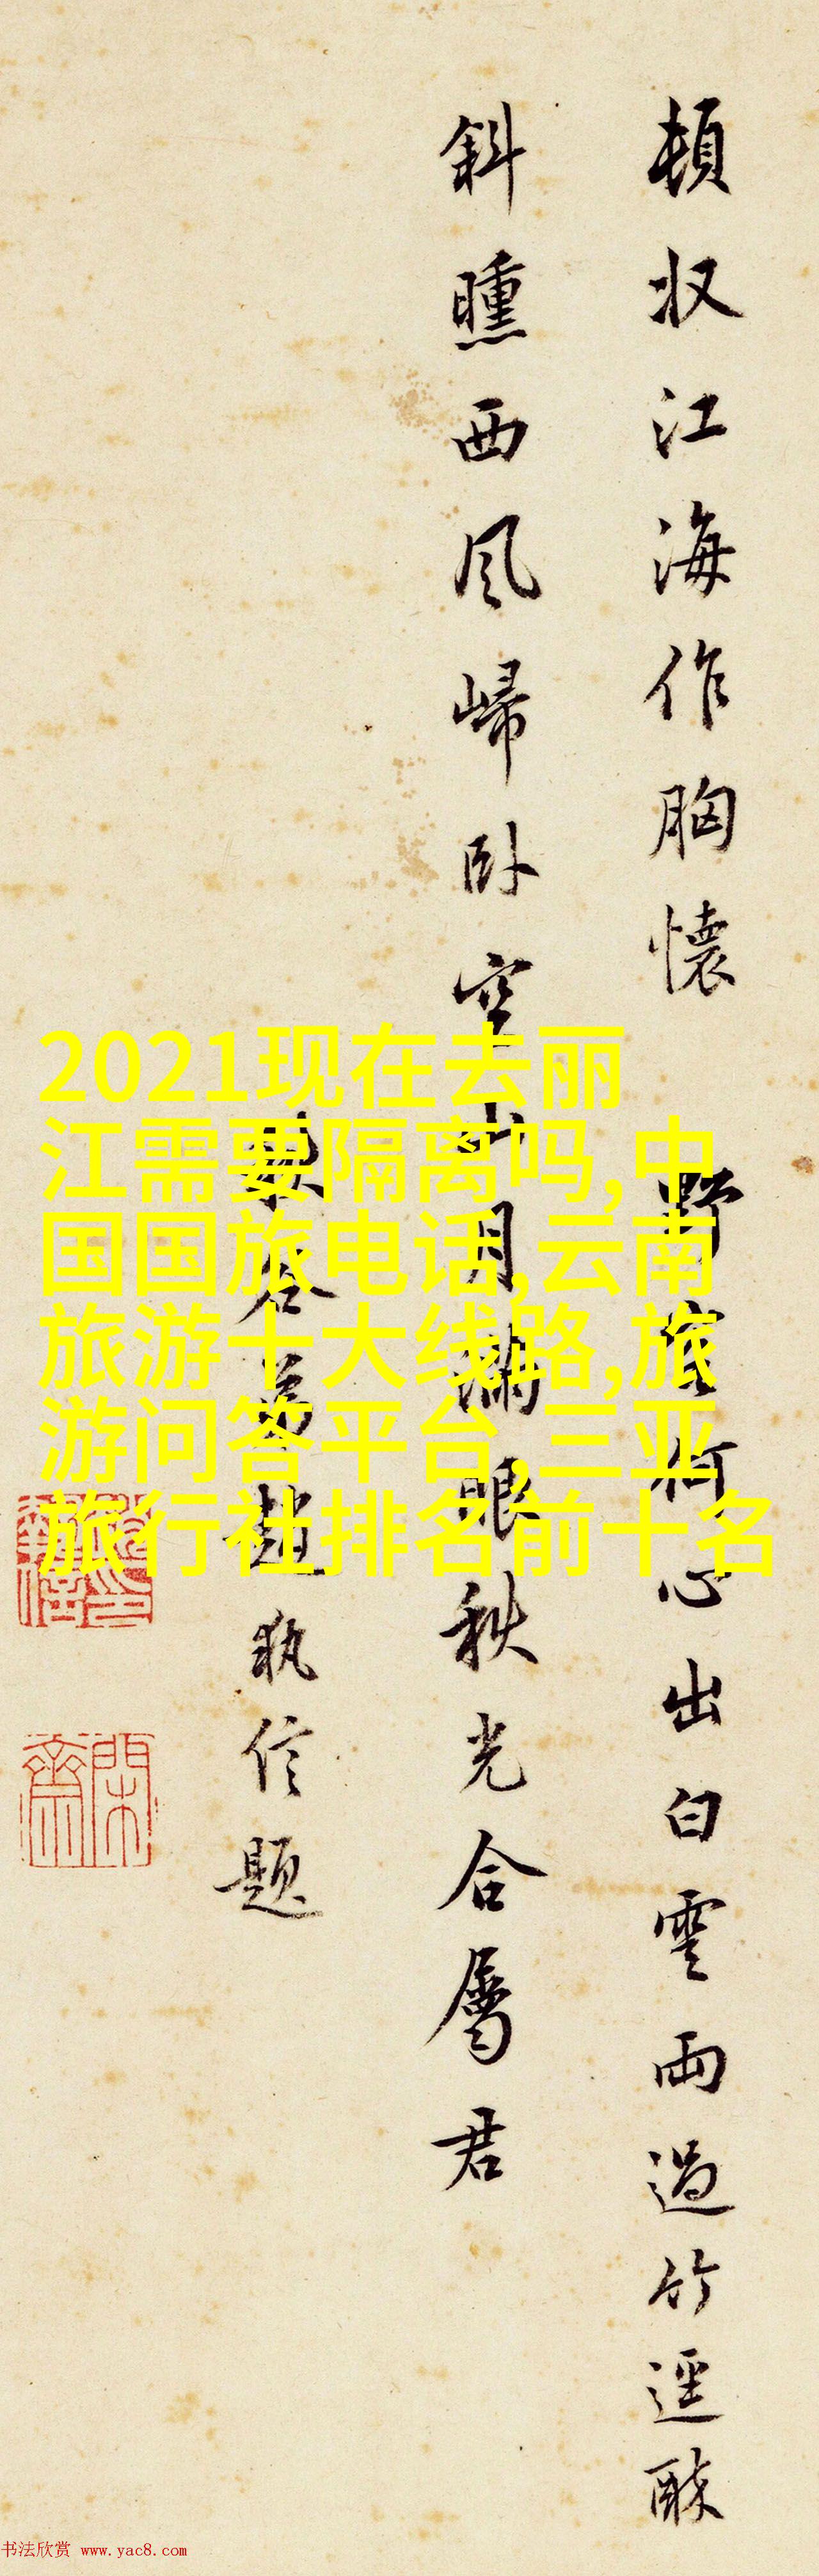 頓收江海作胸懷 野客何心出白雲雨過竹逕醉
斜曛西风歸卧空山月滿眼秋光合屬君
弟趙執信題
2021现在去丽
江需要隔离吗,中
国国旅电话,云南
旅游十大线路,旅
游问答平台,三亚
旅行社排名前十名
閑齋
书法欣赏 www.yac8.com